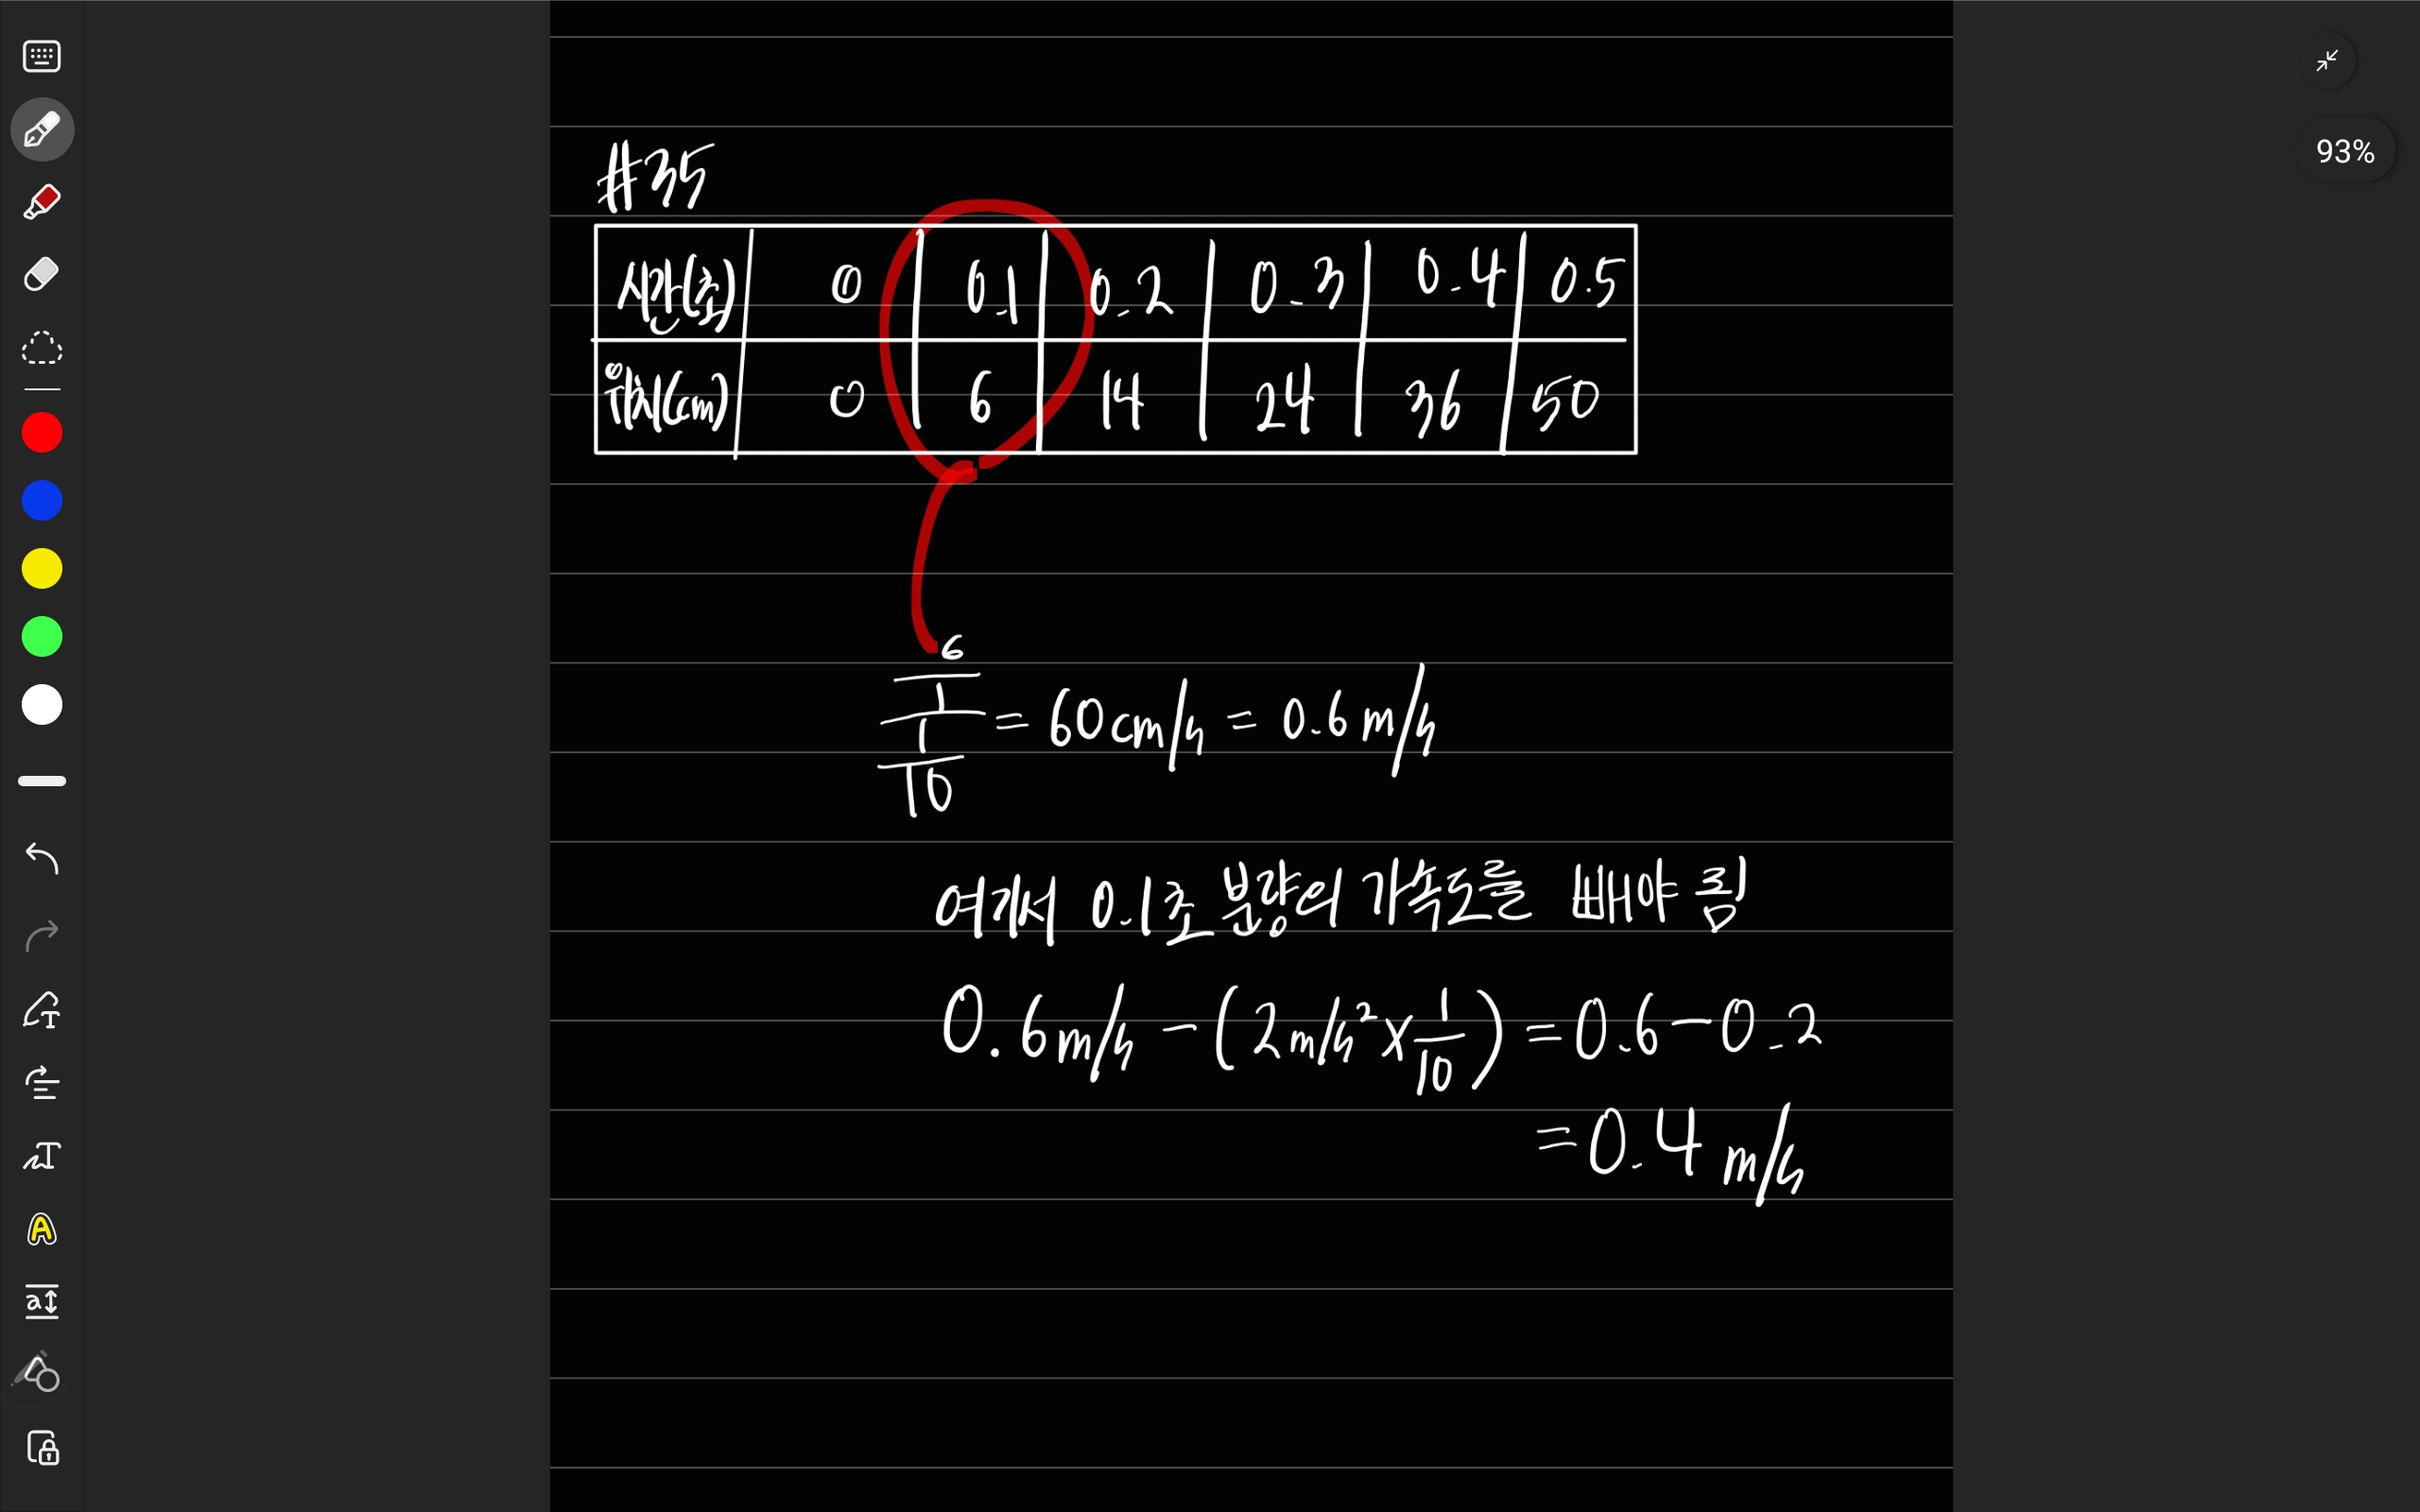 93%
#35
시간(초) 0 0.1 0.2 0.3 0.4 0.5
위치(cm) 0 6 14 24 36 50
6
1
1
10
= 60cm/h = 0.6 m/h
여기서 0.1초 분량의 가속도를 빼야 됨
0.6m/h - (2m/h² x 1/10) = 0.6 - 0.2
= 0.4 m/h